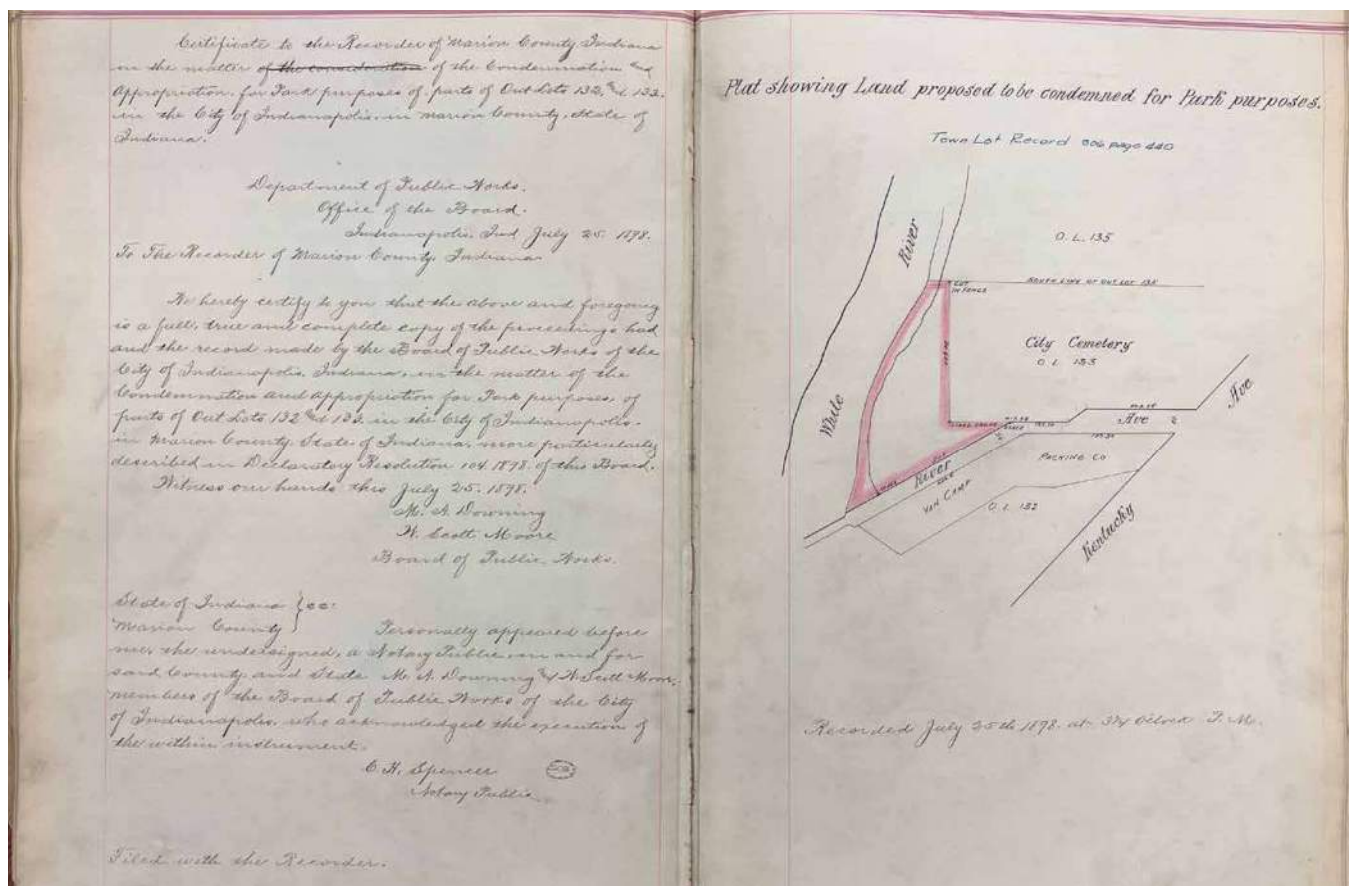 Certificate to the Recorder of Marion County, Indiana
in the matter of the consideration of the Condemnation and
Appropriation, for Park purposes of, parts of Out Lots 132 and 133.
in the City of Indianapolis, in Marion County, State of
Indiana.
Department of Public Works.
Office of the Board.
Indianapolis, Ind July 25. 1898.
To The Recorder of Marion County, Indiana
We hereby certify to you that the above and foregoing
is a full, true and complete copy of the proceedings had
and the record made by the Board of Public Works of the
City of Indianapolis, Indiana, in the matter of the
Condemnation and Appropriation for Park purposes, of
parts of Out Lots 132 and 133. in the City of Indianapolis.
in Marion County, State of Indiana, more particularly
described in Declaratory Resolution 104. 1898. of this Board.
Witness our hands this July 25. 1898.
M. A. Downing
W. Scott Moore
Board of Public Works.
State of Indiana } ss:
Marion County
Personally appeared before
me the undersigned, a Notary Public, in and for
said County and State M. A. Downing and W. Scott Moore,
members of the Board of Public Works of the City
of Indianapolis, who acknowledged the execution of
the within instrument.
C. H. Spencer
Notary Public
Filed with the Recorder.
Plat showing Land proposed to be condemned for Park purposes.
Town Lot Record 306 page 440
River
O. L. 135
CUT IN FENCE
SOUTH LINE OF OUT LOT 135
City Cemetery
O. L. 133
White
Ave
Ave
River
PACKING CO
VAN CAMP
O. L. 132
Kentucky
Recorded July 25th 1898. at 3¼ Oclock P. M.